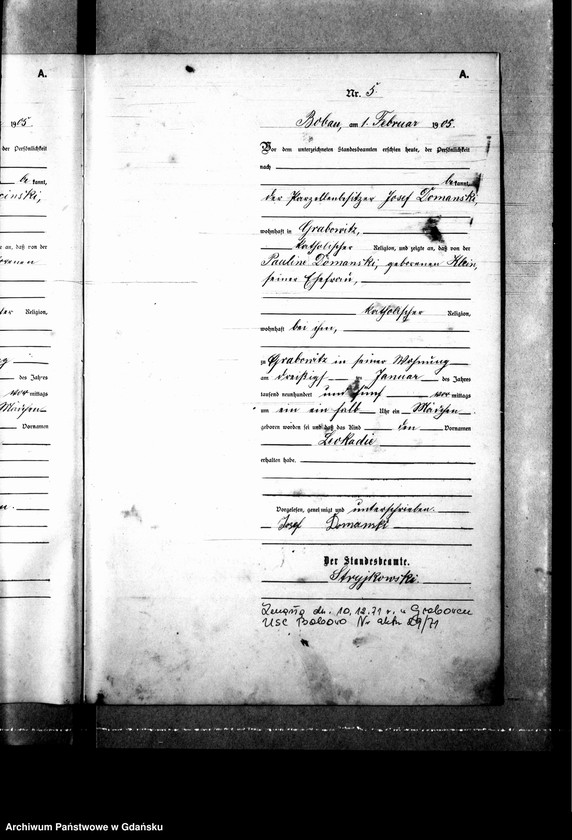 A.
1905.
der Persönlichkeit
be kannt,
an, daß von der
Religion,
des Jahres
mittags
Mädchen
Vornamen
A.
Nr. 5
Bobau, am 1. Februar 1905.
Vor dem unterzeichneten Standesbeamten erschien heute, der Persönlichkeit
nach
be kannt,
der Parzellenbesitzer Josef Domanski,
wohnhaft in Grabowitz,
katholischer Religion, und zeigte an, daß von der
Pauline Domanski, geborenen Klein,
seiner Ehefrau,
katholischer Religion,
wohnhaft bei ihm,
zu Grabowitz in seiner Wohnung
am dreißigsten Januar des Jahres
tausend neunhundert und fünf vor mittags
um ein ein halb Uhr ein Mädchen
geboren worden sei und daß das Kind den Vornamen
Leokadie
erhalten habe.
Vorgelesen, genehmigt und unterschrieben.
Josef Domanski
Der Standesbeamte.
Stryjkowski.
dn. 10.12.71 r. w
USC Bobowo Nr aktu /71
Archiwum Państwowe w Gdańsku